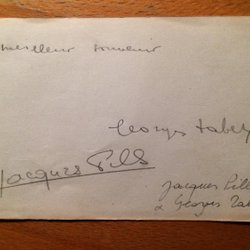 meilleur souvenir
Georges Tabet
Jacques Pills
Jacques Pills
& Georges Tab